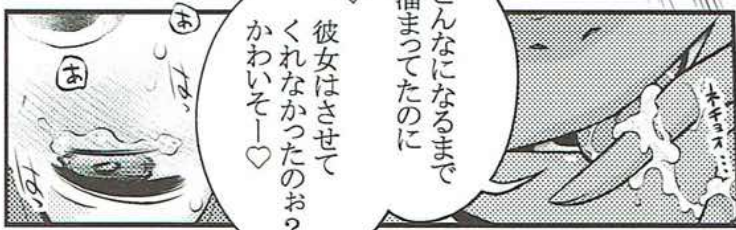 んなになるまで
溜まってたのに
彼女はさせて
くれなかったのぉ?
かわいそー♡
ネチョォ…
あ
あ